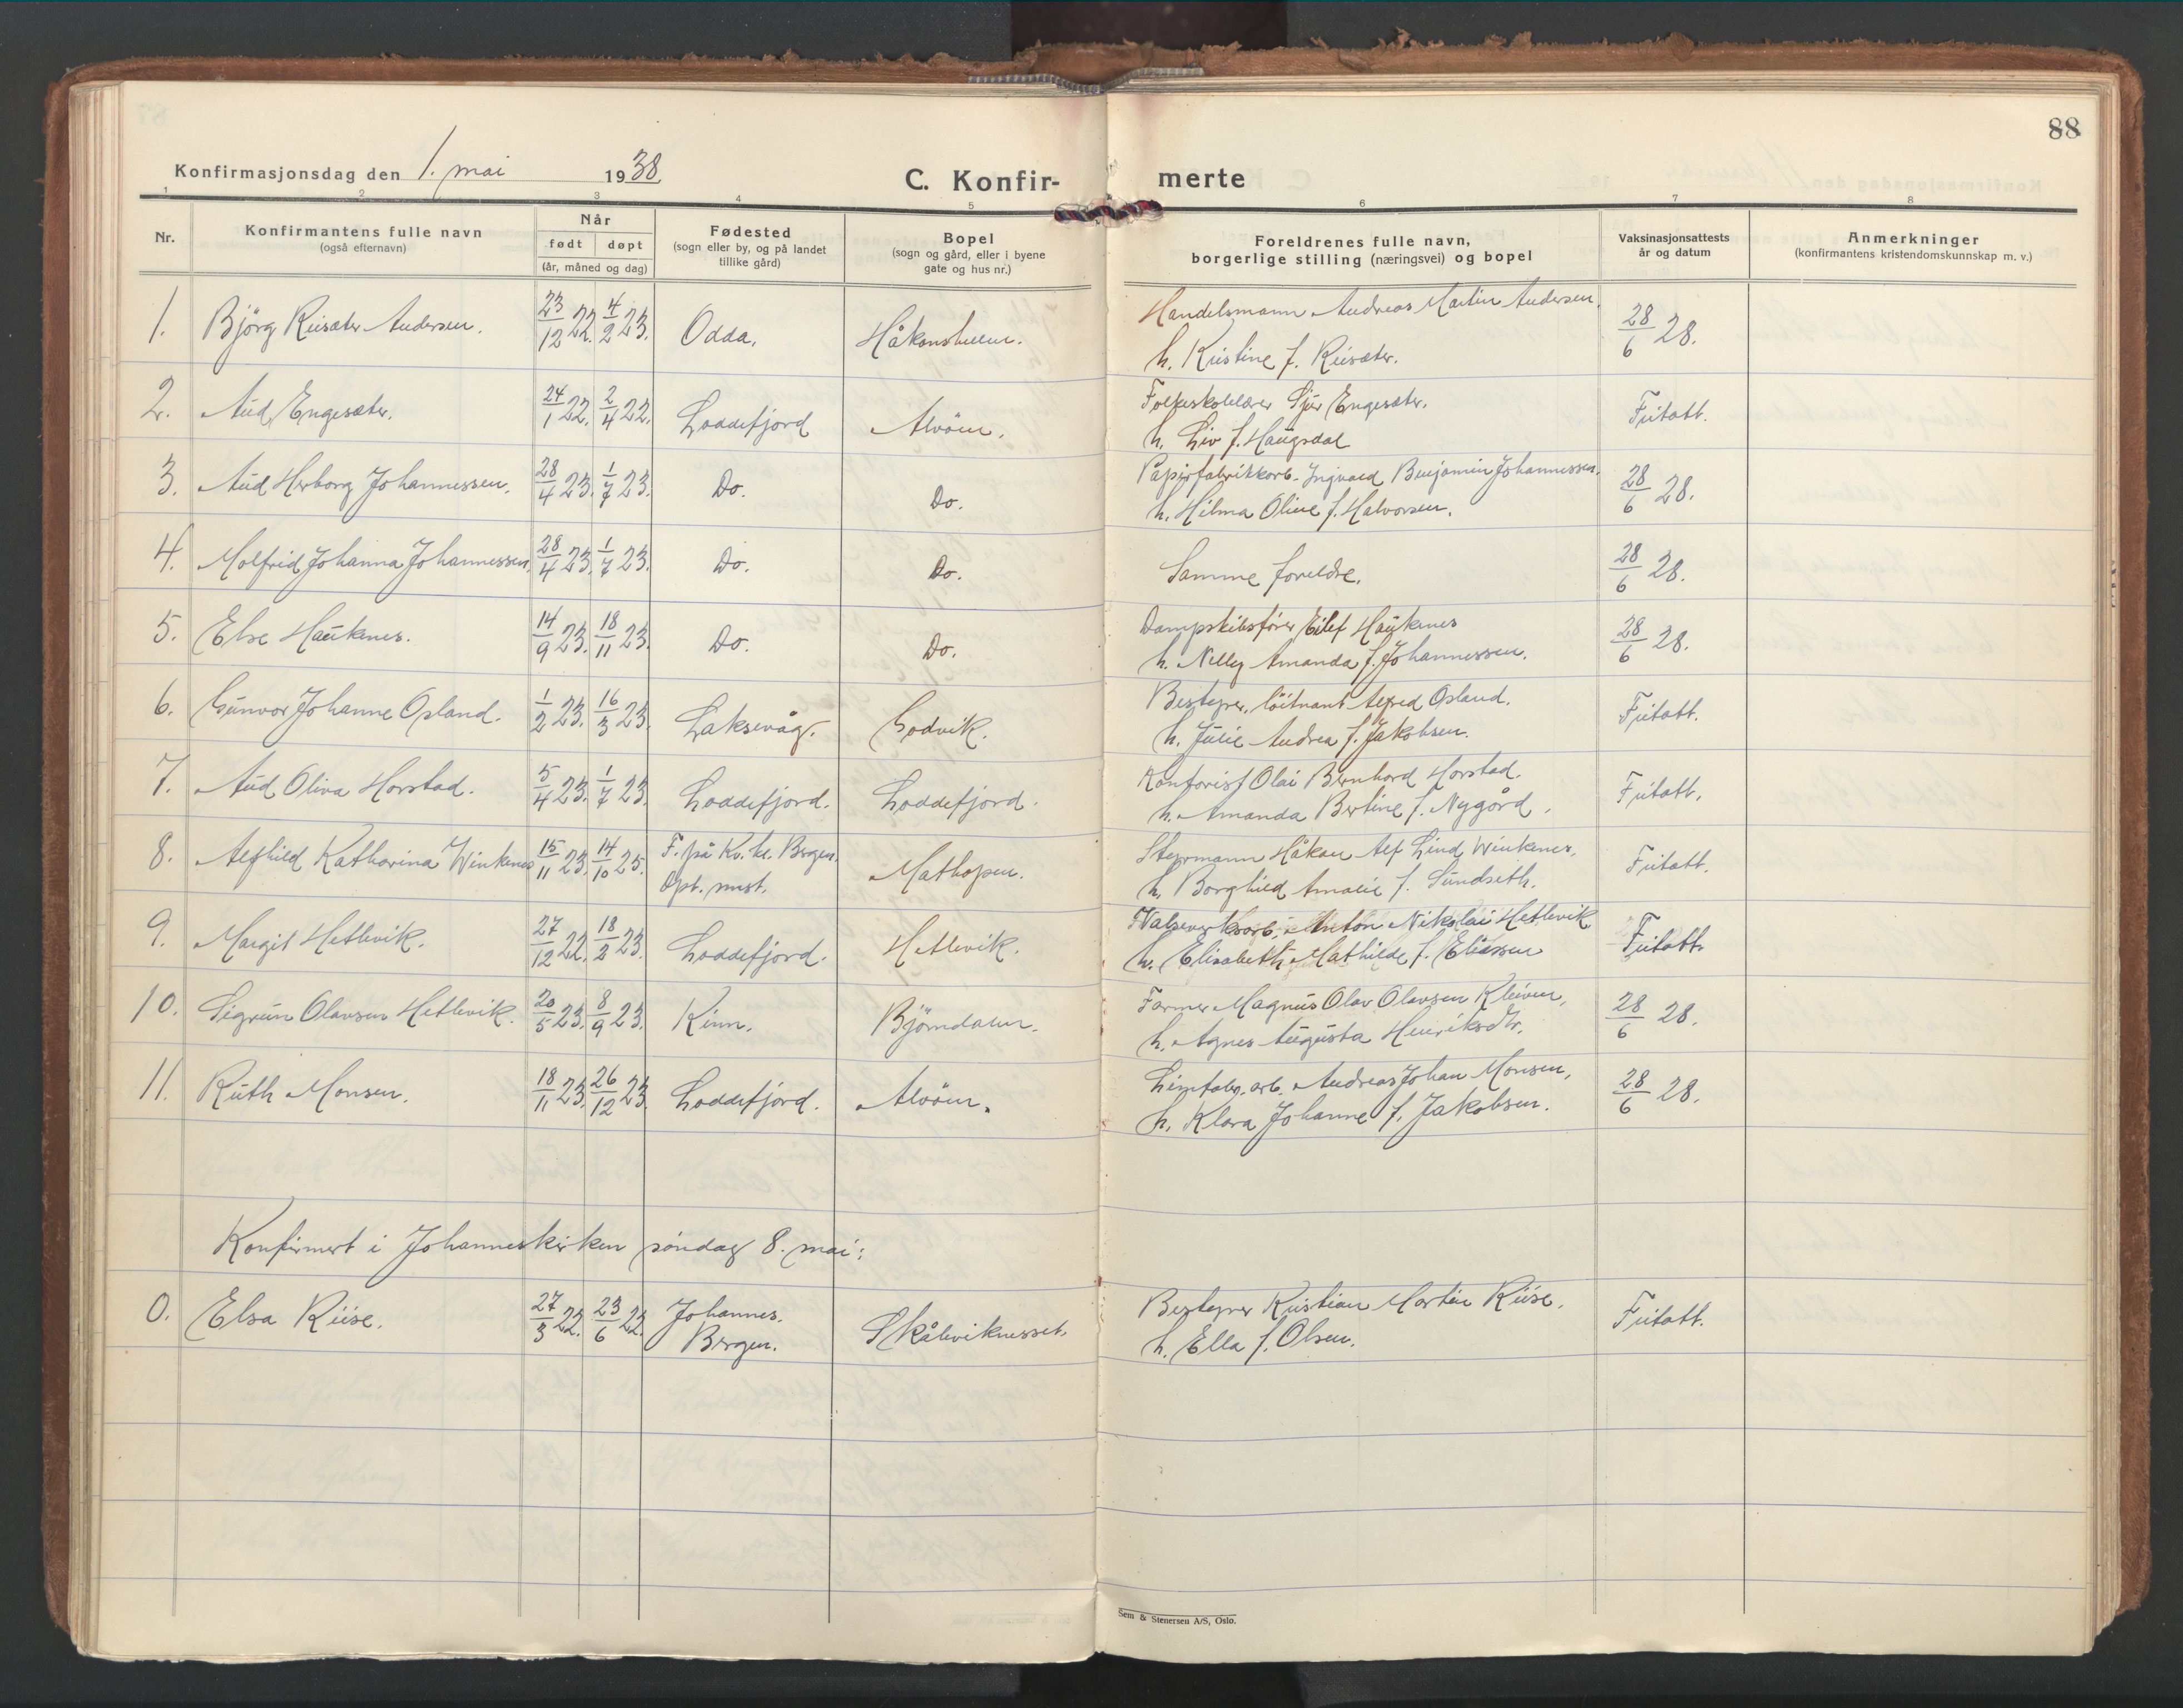 88
Konfirmasjonsdag den 1. mai 1938
C. Konfir- merte
1 2 3 4 5 6 7 8
Nr.
Konfirmantens fulle navn
(også efternavn)
Når
født døpt
(år, måned og dag)
Fødested
(sogn eller by, og på landet
tillike gård)
Bopel
(sogn og gård, eller i byene
gate og hus nr.)
Foreldrenes fulle navn,
borgerlige stilling (næringsvei) og bopel
Vaksinasjonsattests
år og datum
Anmerkninger
(konfirmantens kristendomskunnskap m. v.)
1. Björg Reisæter Andersen. 23/12 22. 4/2 23. Odda. Håkonshellen. Handelsmann Andreas Martin Andersen.
h. Kristine f. Reisæter. 28/6 28.
2. Aud Engesæter. 24/1 22. 2/4 22. Loddefjord Alvöen. Folkeskolelærer Sjur Engesæter.
h. Liv f. Haugsdal Fritatt.
3. Aud Herborg Johannessen. 28/4 23. 1/7 23. Do. Do. Papirfabrikkarb. Ingvald Benjamin Johannessen.
h. Hilma Oline f. Halvorsen. 28/6 28.
4. Molfrid Johanna Johannessen. 28/4 23. 1/7 23. Do. Do. Samme foreldre. 28/6 28.
5. Else Haukenes. 14/9 23. 18/11 23. Do. Do. Dampskibsfører Eilef Haukenes
h. Nelly Amanda f. Johannessen. 28/6 28.
6. Gunvor Johanne Opland. 1/2 23. 16/3 23. Laksevåg. Godvik. Bestyrer, löitnant Alfred Opland.
h. Julie Andrea f. Jakobsen. Fritatt.
7. Aud Oliva Horstad. 5/4 23. 1/7 23. Loddefjord. Loddefjord. Kontorist Olai Bernhard Horstad.
h. Amanda Bertine f. Nygård. Fritatt.
8. Alfhild Katharina Winkenes 15/11 23. 14/10 25. F. på Kv. kl. Bergen.
Döpt. Mathopen. Styrmann Håkon Alf Lind Winkenes,
h. Borghild Amalie f. Sundseth. Fritatt.
9. Margit Hetlevik. 27/12 22. 18/2 23. Loddefjord. Hetlevik. Valseverksarb. Anton Nikolai Hetlevik
h. Elisabeth Mathilde f. Eliassen Fritatt.
10. Sigrun Olavsen Hetlevik. 20/5 23. 8/9 23. Kinn. Björndalen. Farmer Magnus Olav Olavsen Kleiven,
h. Agnes Augusta Henriksdtr. 28/6 28.
11. Ruth Monsen. 18/11 23. 26/12 23. Loddefjord. Alvöen. Limfabr. arb. Andreas Johan Monsen,
h. Klara Johanne f. Jakobsen. 28/6 28.
Konfirmert i Johanneskirken söndag 8. mai:
0. Elsa Riise. 27/3 22. 23/6 22. Johannes.
Bergen. Skåleviknesset. Bestyrer Kristian Martin Riise.
h. Ella f. Olsen. Fritatt.
Sem & Stenersen A/S, Oslo.